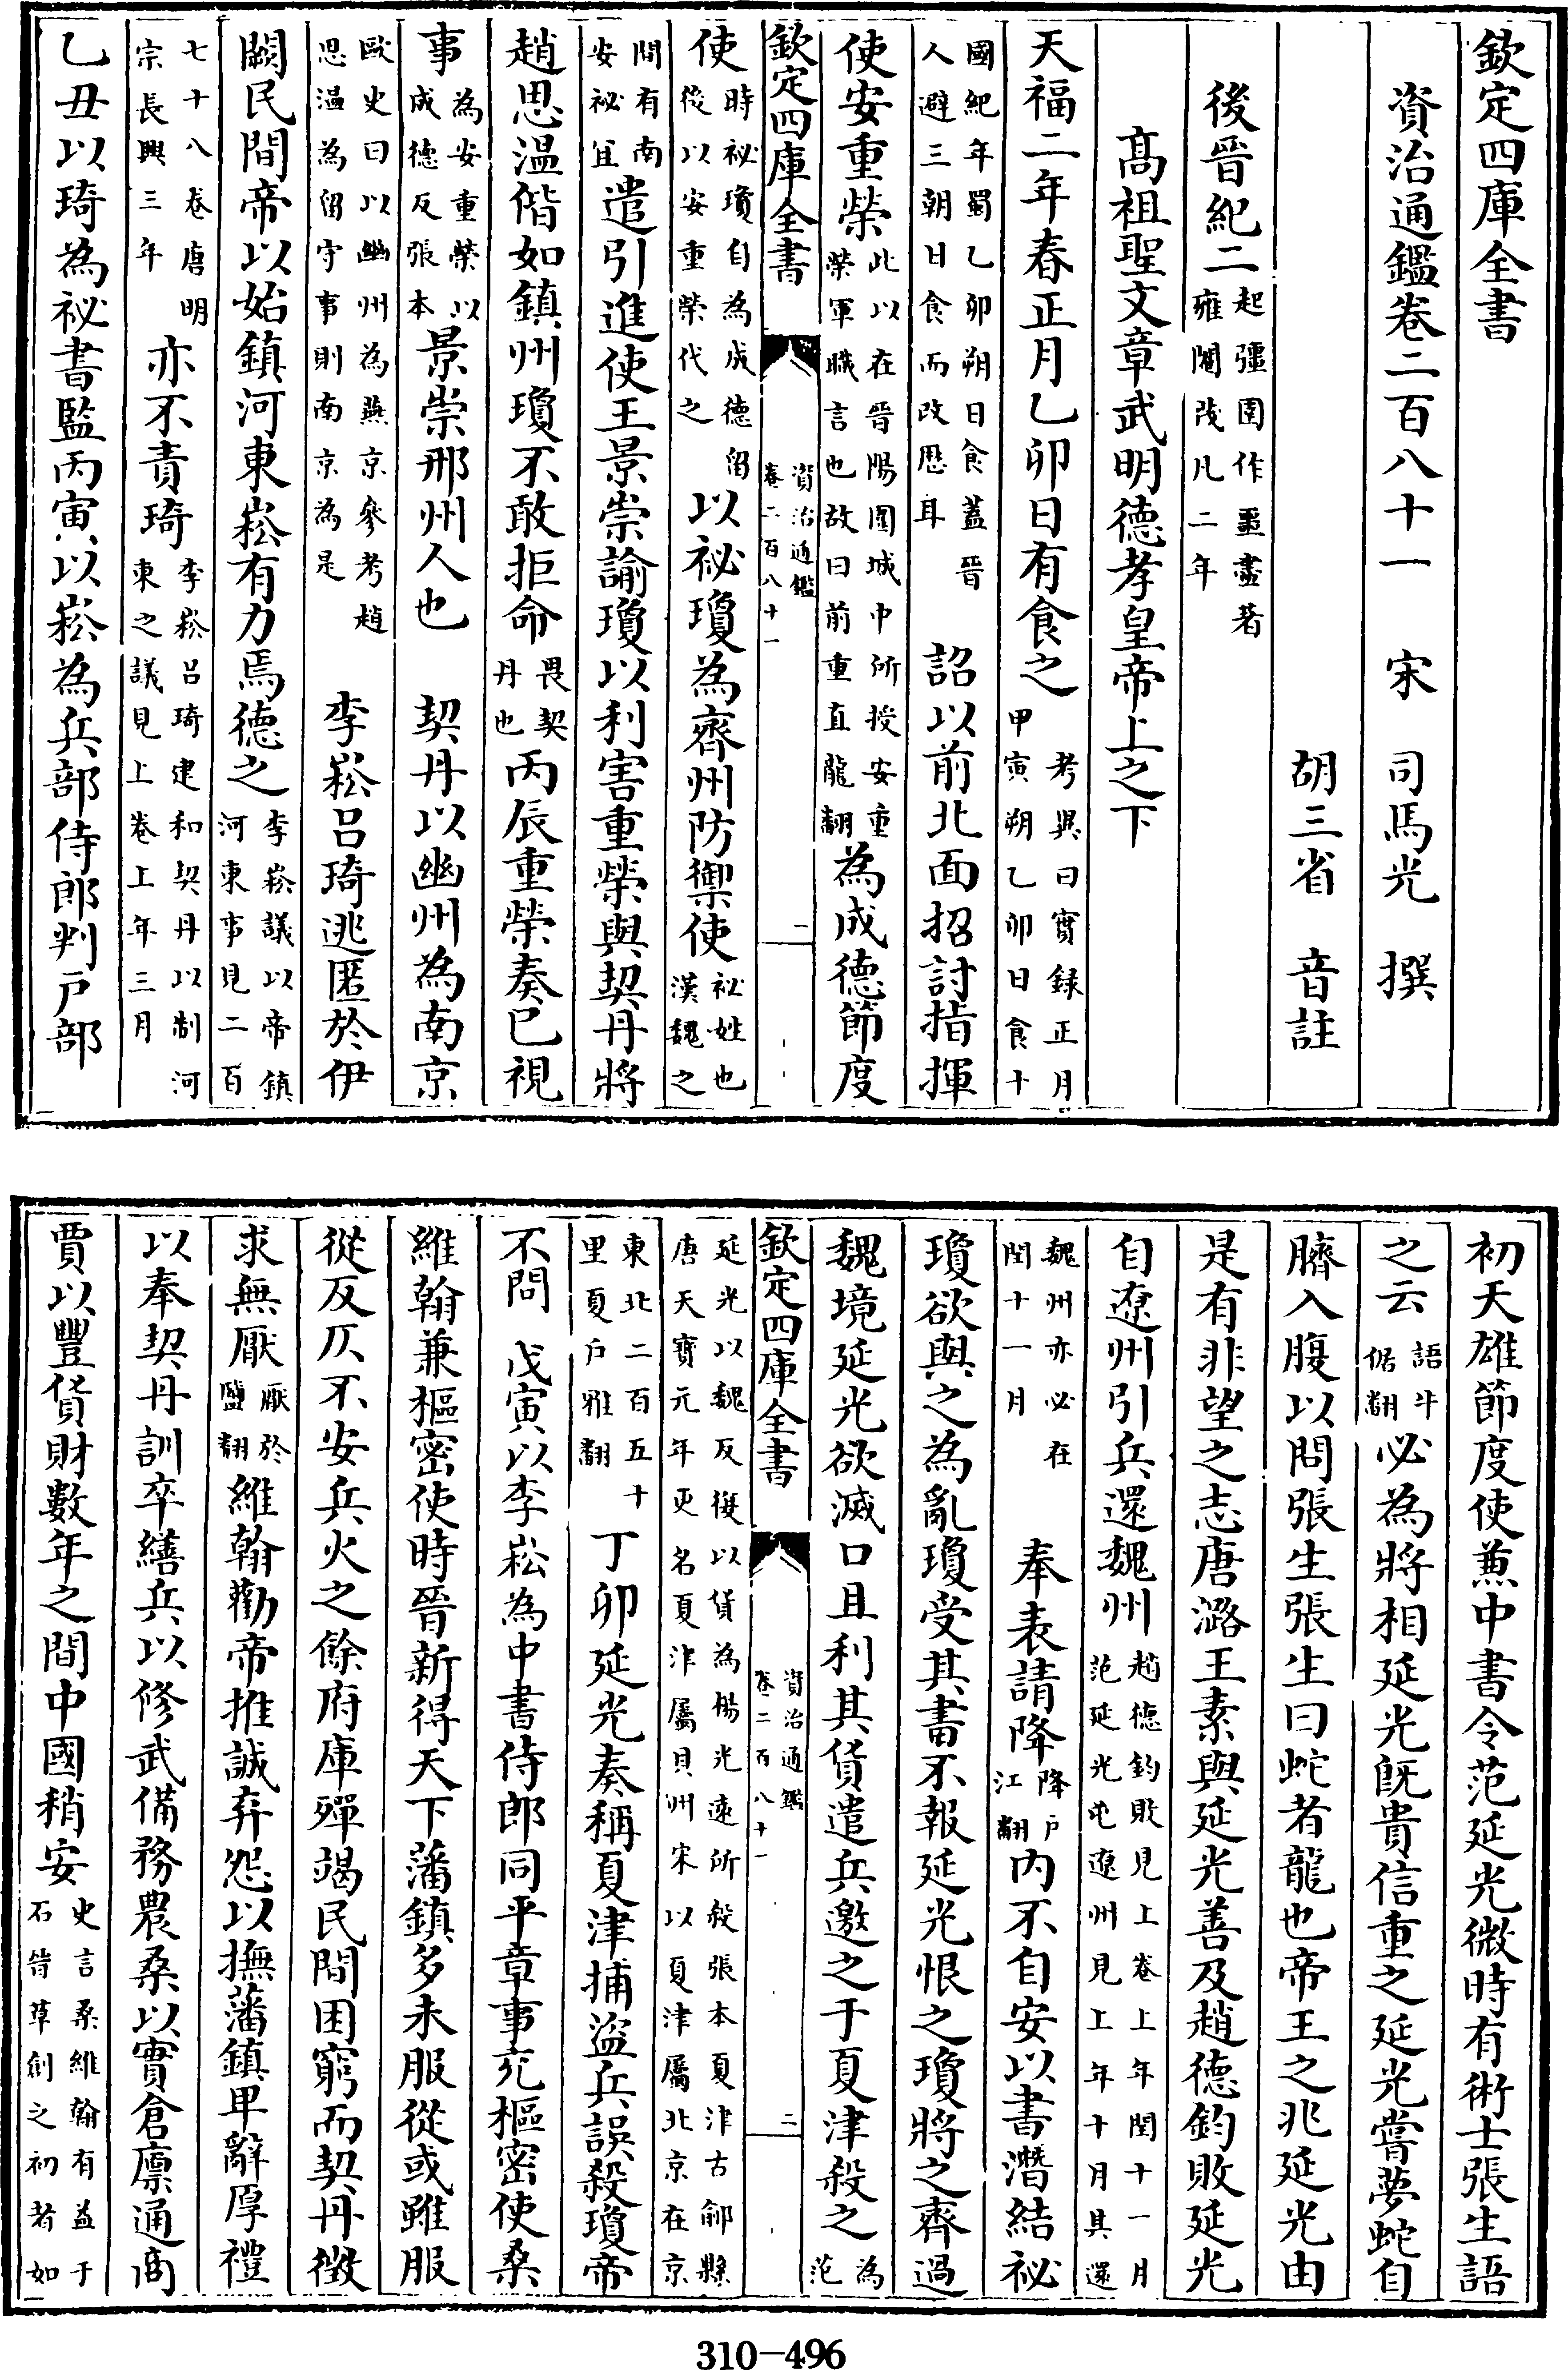 欽定四庫全書
資治通鑑卷二百八十一　宋　司馬光　撰
胡三省　音註
後晉紀二起彊圉作噩盡著雍閹茂凡二年
高祖聖文章武明德孝皇帝上之下
天福二年春正月乙卯日有食之考異曰實録正月甲寅朔乙卯日食十
國紀年蜀乙卯朔日食蓋晉人避三朝日食而改厯耳　詔以前北面招討指揮
使安重榮此以在晉陽圍城中所授安重榮軍職言也故曰前重直龍翻為成德節度
欽定四庫全書　資治通鑑卷二百八十一　一
使時祕瓊自為成德留後以安重榮代之以祕瓊為齊州防禦使祕姓也漢魏之
間有南安祕宜遣引進使王景崇諭瓊以利害重榮與契丹將
趙思温偕如鎮州瓊不敢拒命畏契丹也丙辰重榮奏已視
事為安重榮以成德反張本景崇邢州人也　契丹以幽州為南京
歐史曰以幽州為燕京參考趙思温為留守事則南京為是　李崧吕琦逃匿於伊
闕民間帝以始鎮河東崧有力焉德之李崧議以帝鎮河東事見二百
七十八卷唐明宗長興三年亦不責琦李崧吕琦建和契丹以制河東之議見上卷上年三月
乙丑以琦為祕書監丙寅以崧為兵部侍郎判户部
初天雄節度使兼中書令范延光微時有術士張生語
之云語牛倨翻必為將相延光既貴信重之延光嘗夢蛇自
臍入腹以問張生張生曰蛇者龍也帝王之兆延光由
是有非望之志唐潞王素與延光善及趙德鈞敗延光
自遼州引兵還魏州趙德鈞敗見上卷上年閏十一月范延光屯遼州見上年十月其還
魏州亦必在閏十一月　奉表請降降户江翻内不自安以書潛結祕
瓊欲與之為亂瓊受其書不報延光恨之瓊將之齊過
魏境延光欲滅口且利其貨遣兵邀之于夏津殺之為范
欽定四庫全書　資治通鑑卷二百八十一　二
延光以魏反復以貨為楊光遠所殺張本夏津古鄃縣唐天寶元年更名夏津屬貝州宋以夏津屬北京在京
東北二百五十里夏户雅翻　丁卯延光奏稱夏津捕盜兵誤殺瓊帝
不問　戊寅以李崧為中書侍郎同平章事充樞密使桑
維翰兼樞密使時晉新得天下藩鎮多未服從或雖服
從反仄不安兵火之餘府庫殫竭民間困窮而契丹徵
求無厭厭於鹽翻維翰勸帝推誠弃怨以撫藩鎮卑辭厚禮
以奉契丹訓卒繕兵以修武備務農桑以實倉廪通商
賈以豐貨財數年之間中國稍安史言桑維翰有益于石晉草創之初者如
310—496